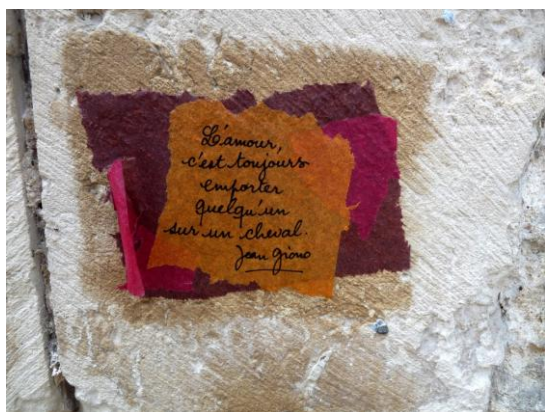 L'amour,
c'est toujours
emporter
quelqu'un
sur un cheval.
Jean Giono